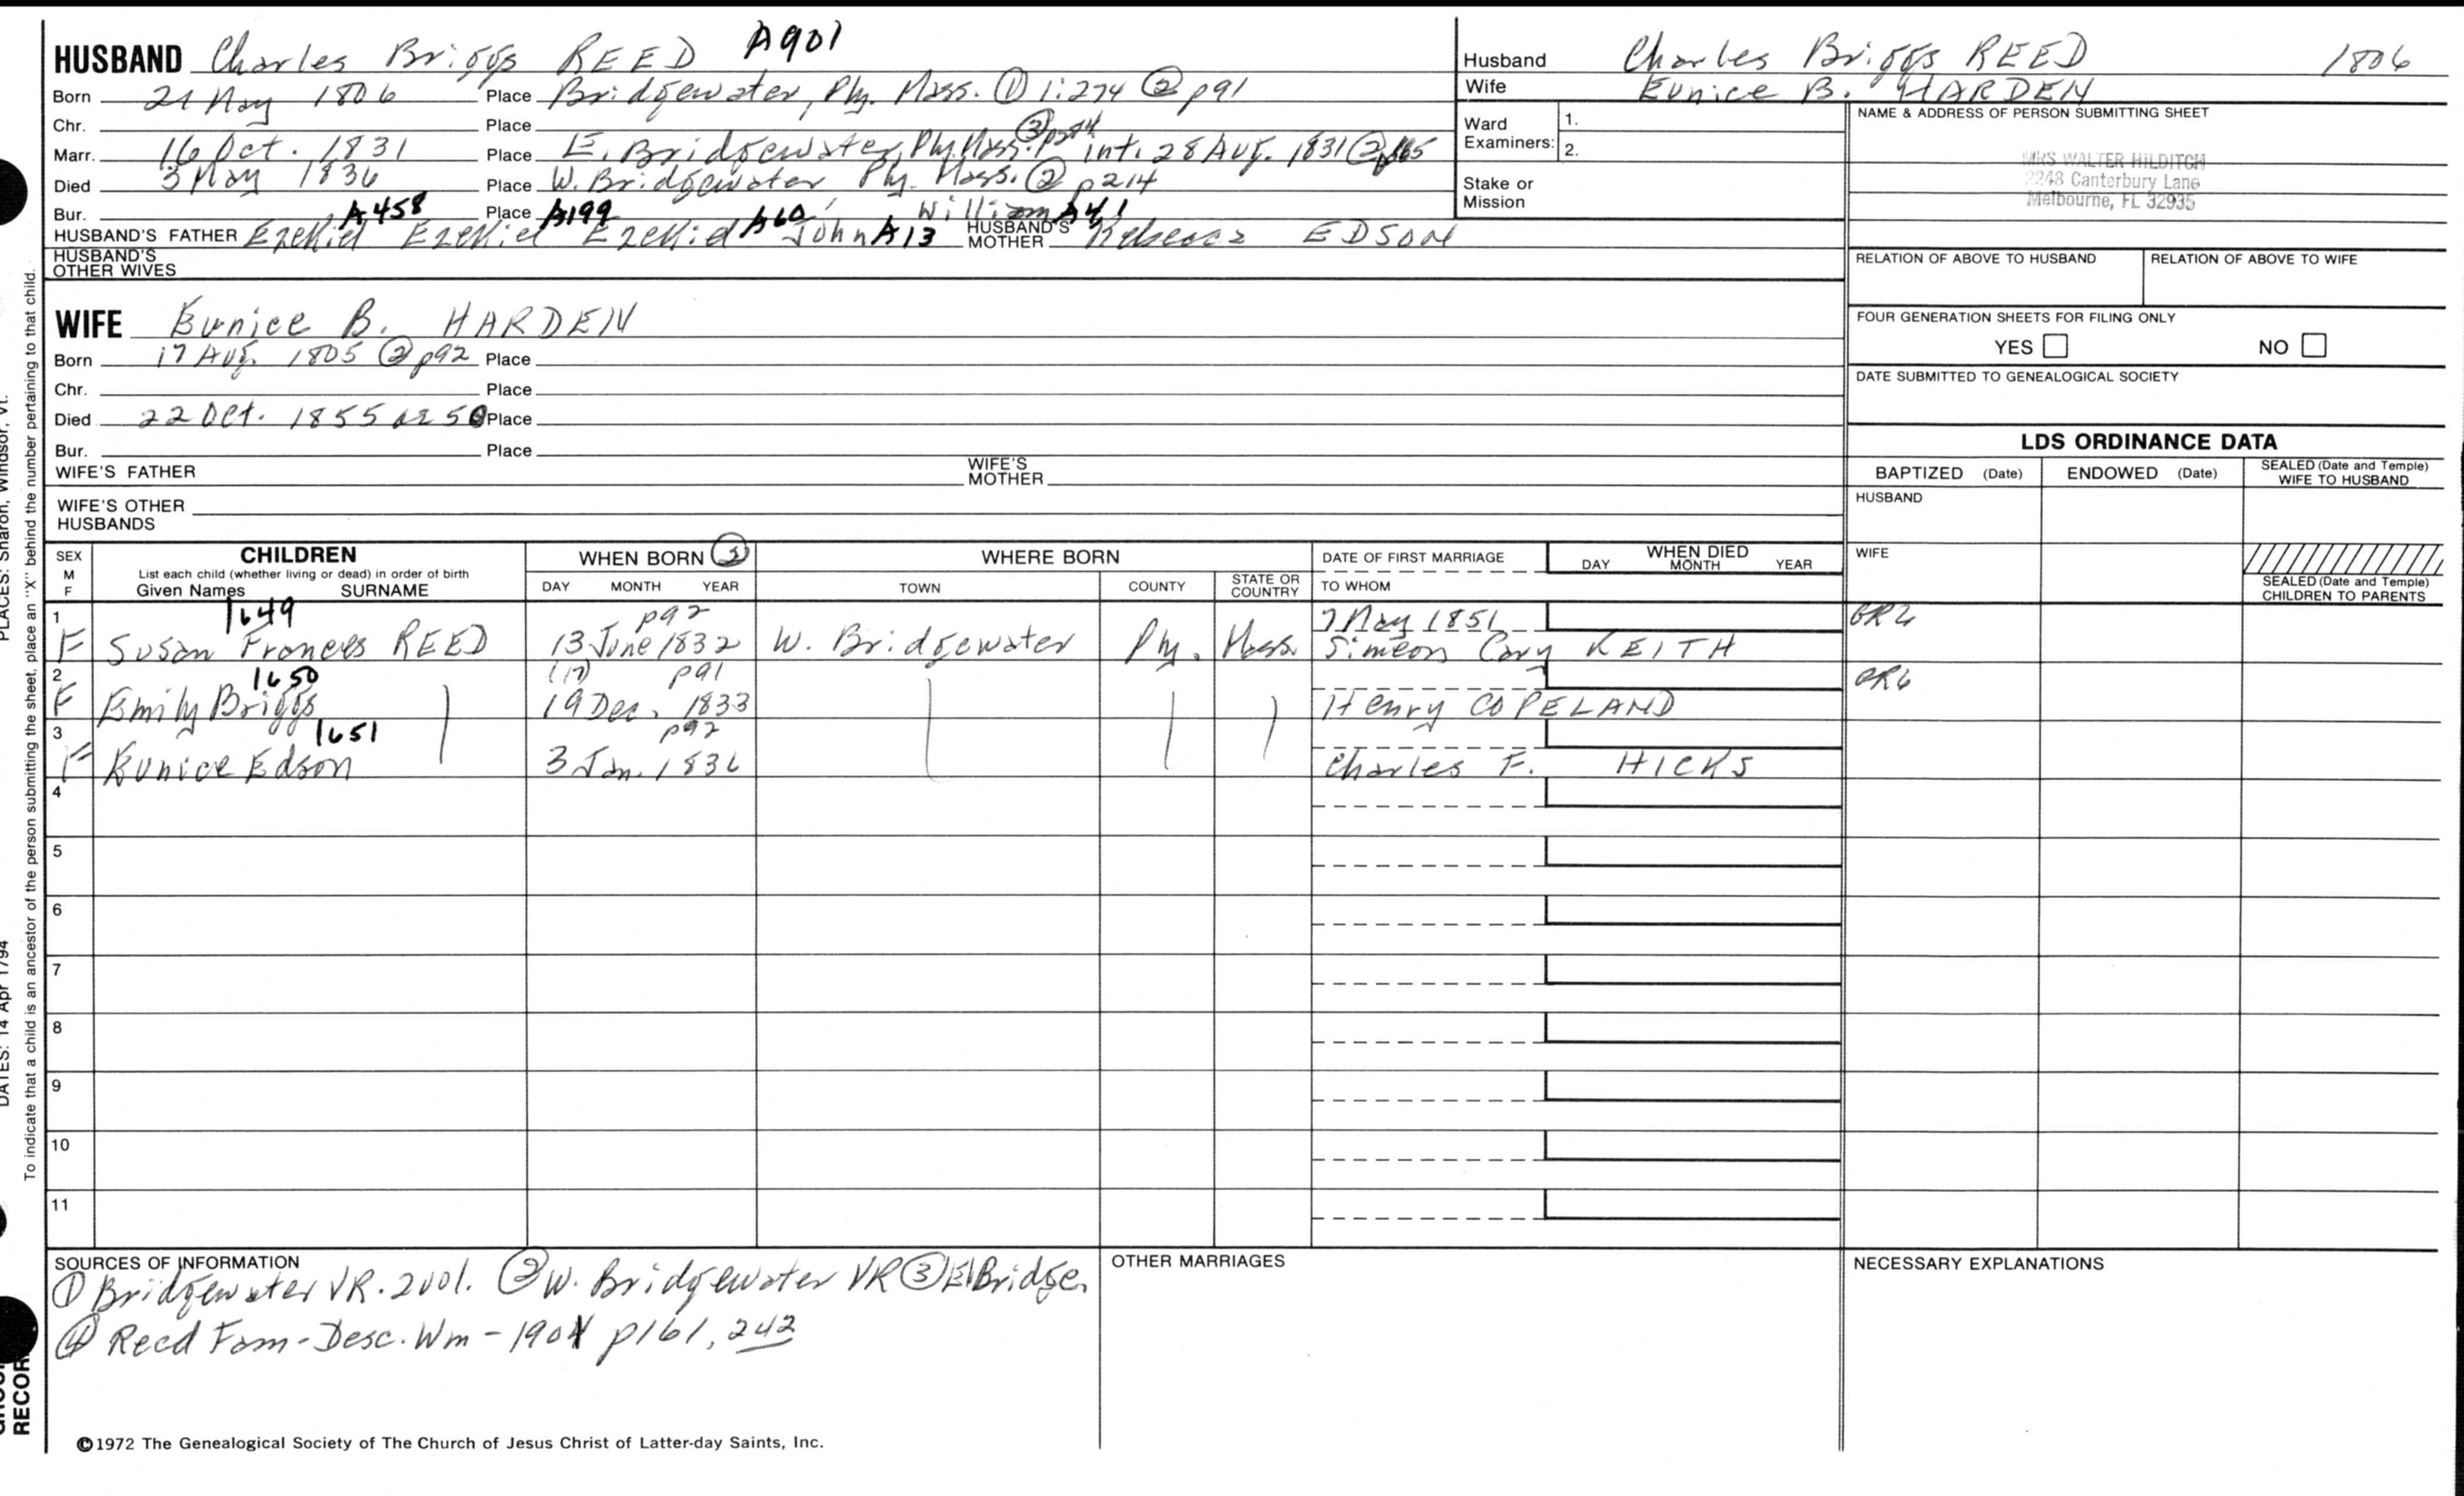 HUSBAND Charles Briggs REED A901
Born 21 May 1806 Place Bridgewater, Ply. Mass. ① 1:274 ② p91
Chr. Place
Marr. 16 Oct. 1831 Place E. Bridgewater, Ply. Mass. ③ int. 28 Aug. 1831 ②
Died 3 May 1836 Place W. Bridgewater Ply. Mass. ② p214
Bur. Place
A458 A199 A60 William A41
HUSBAND'S FATHER Ezekiel Ezekiel Ezekiel John A13 HUSBAND'S MOTHER Rebecca EDSON
HUSBAND'S OTHER WIVES
WIFE Eunice B. HARDEN
Born 17 Aug. 1805 ② p92 Place
Chr. Place
Died 22 Oct. 1855 or 56 Place
Bur. Place
WIFE'S FATHER WIFE'S MOTHER
WIFE'S OTHER HUSBANDS
Husband Charles Briggs REED 1806
Wife Eunice B. HARDEN
Ward Examiners: 1.
2.
Stake or Mission
NAME & ADDRESS OF PERSON SUBMITTING SHEET
MRS WALTER HILDITCH
2248 Canterbury Lane
Melbourne, FL 32935
RELATION OF ABOVE TO HUSBAND RELATION OF ABOVE TO WIFE
FOUR GENERATION SHEETS FOR FILING ONLY
YES NO
DATE SUBMITTED TO GENEALOGICAL SOCIETY
LDS ORDINANCE DATA
BAPTIZED (Date) ENDOWED (Date) SEALED (Date and Temple) WIFE TO HUSBAND
HUSBAND
WIFE
SEALED (Date and Temple) CHILDREN TO PARENTS
SEX M F CHILDREN WHEN BORN WHERE BORN DATE OF FIRST MARRIAGE WHEN DIED
List each child (whether living or dead) in order of birth
Given Names SURNAME DAY MONTH YEAR TOWN COUNTY STATE OR COUNTRY TO WHOM DAY MONTH YEAR
1 1649 p92 7 May 1851
F Susan Frances REED 13 June 1832 W. Bridgewater Ply. Mass. Simeon Cary KEITH
2 1650 (17) p91
F Emily Briggs 19 Dec. 1833 Henry COPELAND
3 1651 p92
F Eunice Edson 3 Jan. 1836 Charles F. HICKS
4
5
6
7
8
9
10
11
SOURCES OF INFORMATION
① Bridgewater VR. 2vol. ② W. Bridgewater VR ③ E Bridge.
④ Reed Fam-Desc. Wm - 1901 p161, 242
OTHER MARRIAGES
NECESSARY EXPLANATIONS
©1972 The Genealogical Society of The Church of Jesus Christ of Latter-day Saints, Inc.
To indicate that a child is an ancestor of the person submitting the sheet, place an "X" behind the number pertaining to that child.
PLACES: Sharon, Windsor, Vt.
DATES: 14 Apr 1794
RECORD